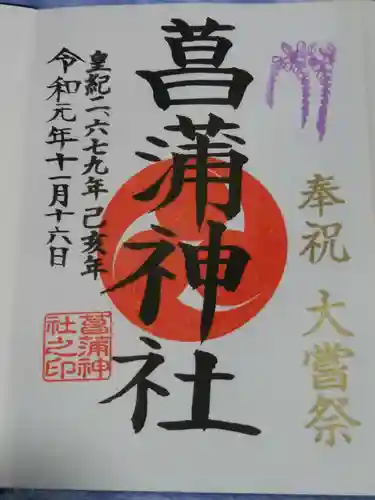 奉祝 大嘗祭
菖蒲神社
皇紀二、六七九年 己亥年
令和元年十一月十六日
菖蒲神
社之印